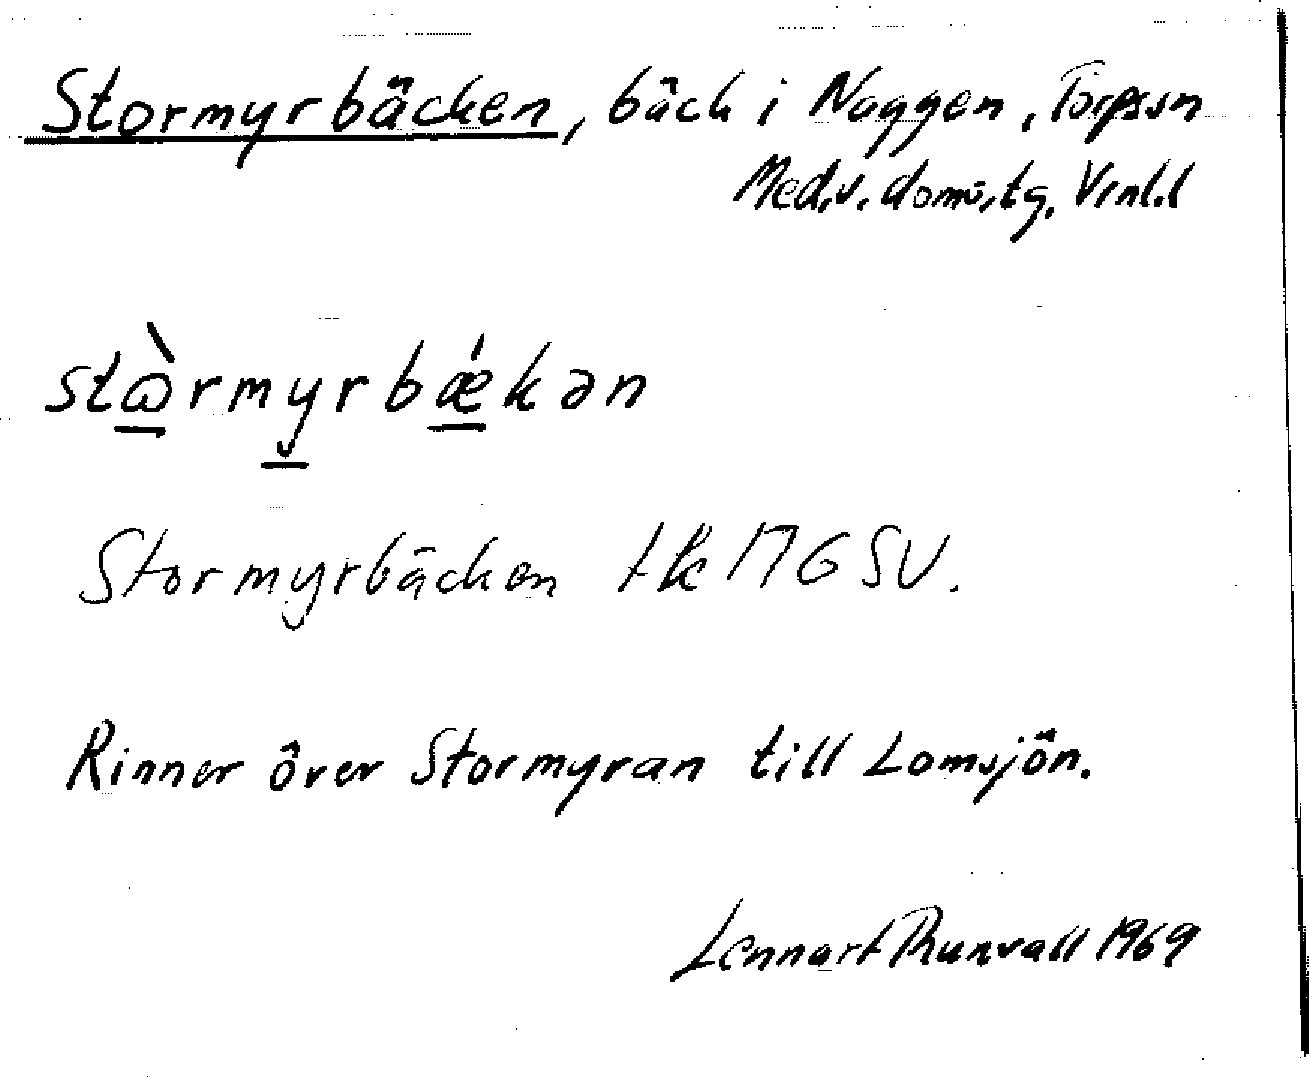 Stormyrbäcken, bäck i Naggen, Torpssn
Med.v. doms.tg. Vrnl.l
stɷ̀rmyrbǽkən
Stormyrbäcken tk 17G SV.
Rinner över Stormyran till Lomsjön.
Lennart Runvall 1969